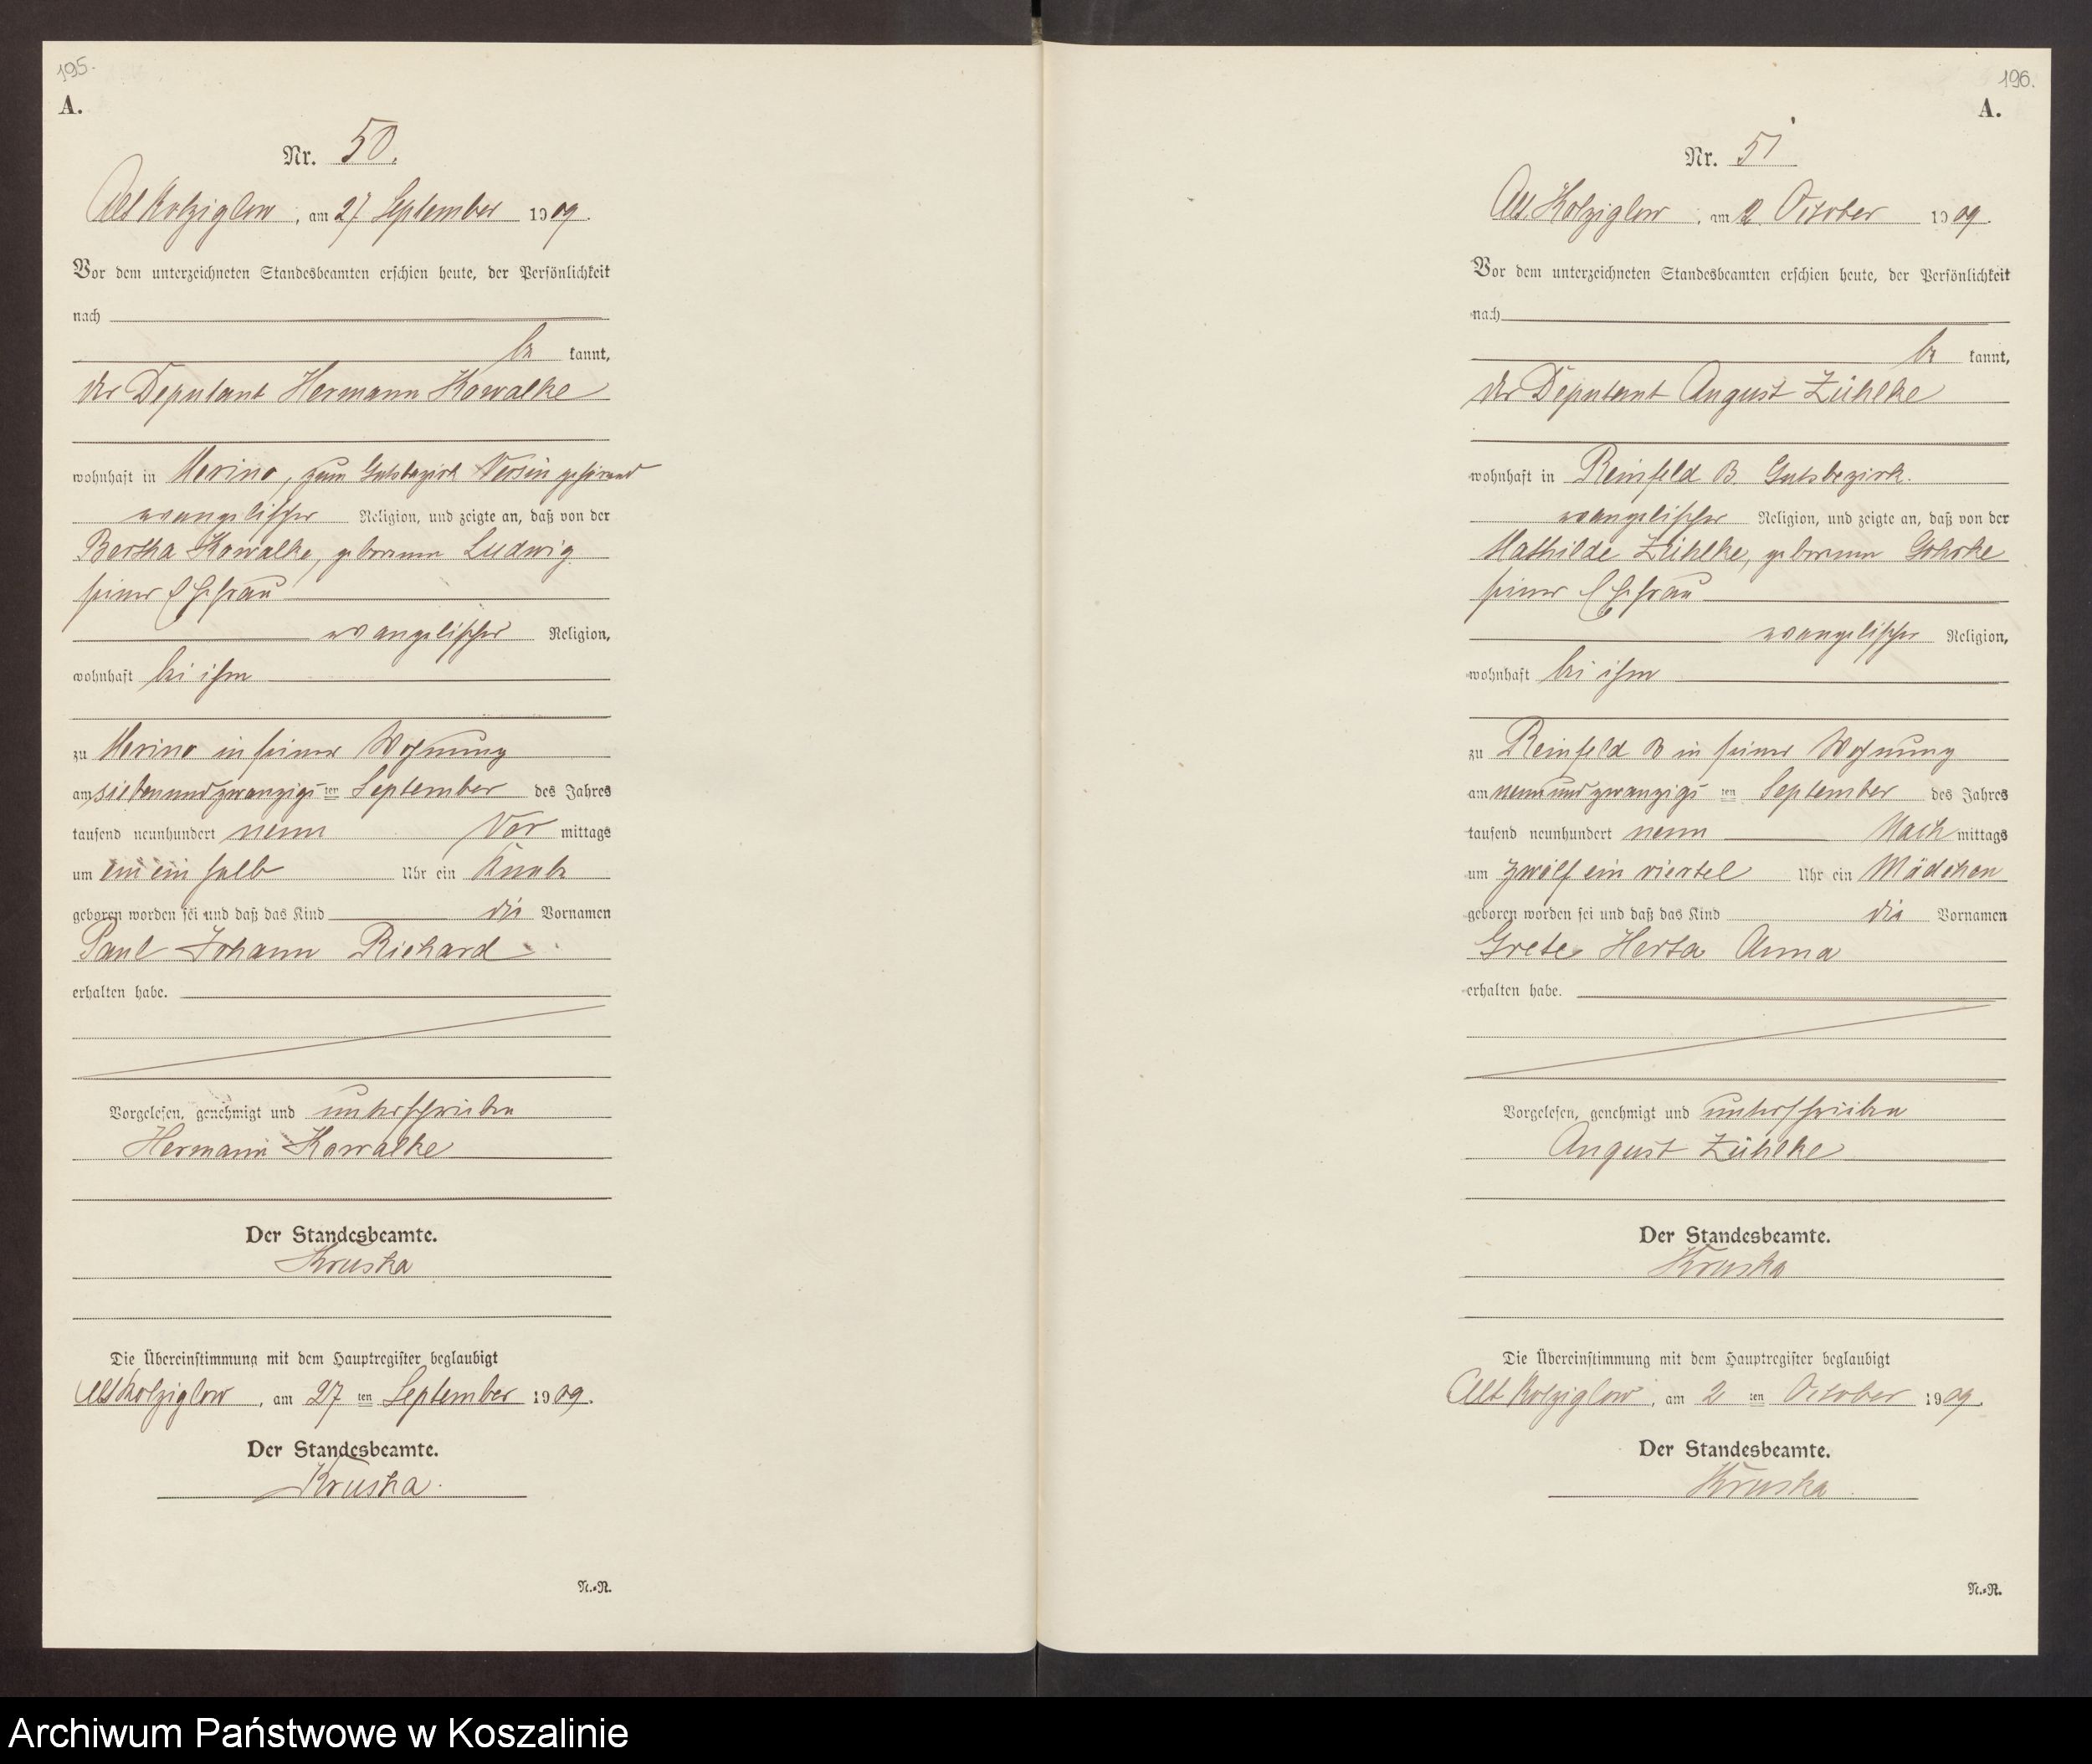 195.
A.
Nr. 50.
Alt Kolziglow, am 27 September 1909.
Vor dem unterzeichneten Standesbeamten erschien heute, der Persönlichkeit
nach
be kannt,
der Deputant Hermann Kowalke
wohnhaft in Merino, zum Gutsbezirk Versin gehörend
evangelischer Religion, und zeigte an, daß von der
Bertha Kowalke, geborenen Ludwig
seiner Ehefrau
evangelischer Religion,
wohnhaft bei ihm
zu Merino in seiner Wohnung
am siebenundzwanzigs ten September des Jahres
tausend neunhundert neun Vor mittags
um ein ein halb Uhr ein Knabe
geboren worden sei und daß das Kind die Vornamen
Paul Johann Richard
erhalten habe.
Vorgelesen, genehmigt und unterschrieben
Hermann Kowalke
Der Standesbeamte.
Kruska
Die Übereinstimmung mit dem Hauptregister beglaubigt
Alt Kolziglow, am 27 ten September 1909.
Der Standesbeamte.
Kruska.
N.-R.
196.
A.
Nr. 51
Alt Kolziglow, am 2. October 1909.
Vor dem unterzeichneten Standesbeamten erschien heute, der Persönlichkeit
nach
be kannt,
der Deputant August Zühlke
wohnhaft in Reinfeld B. Gutsbezirk.
evangelischer Religion, und zeigte an, daß von der
Mathilde Zühlke, geborenen Gohrke
seiner Ehefrau
evangelischer Religion,
wohnhaft bei ihm
zu Reinfeld B in seiner Wohnung
am neunundzwanzigs ten September des Jahres
tausend neunhundert neun Nach mittags
um zwölf ein viertel Uhr ein Mädchen
geboren worden sei und daß das Kind die Vornamen
Grete Herta Anna
erhalten habe.
Vorgelesen, genehmigt und unterschrieben
August Zühlke
Der Standesbeamte.
Kruska
Die Übereinstimmung mit dem Hauptregister beglaubigt
Alt Kolziglow, am 2 ten October 1909.
Der Standesbeamte.
Kruska.
N.-R.
Archiwum Państwowe w Koszalinie